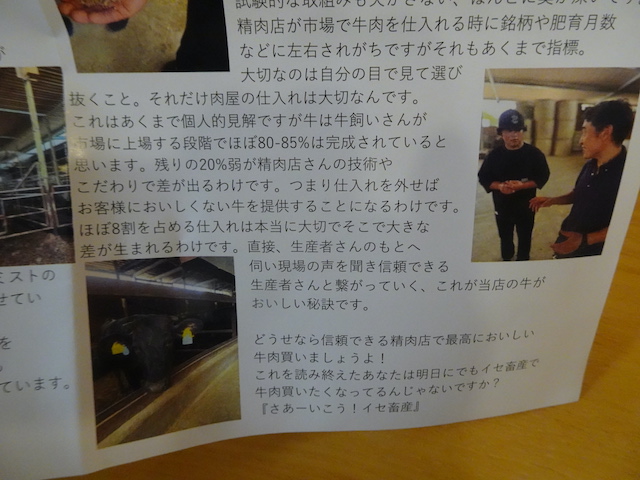 試験的な取組みも欠かさない、ほんとに奥が深いです
精肉店が市場で牛肉を仕入れる時に銘柄や肥育月数
などに左右されがちですがそれもあくまで指標。
大切なのは自分の目で見て選び
抜くこと。それだけ肉屋の仕入れは大切なんです。
これはあくまで個人的見解ですが牛は牛飼いさんが
市場に上場する段階でほぼ80-85%は完成されていると
思います。残りの20%弱が精肉店さんの技術や
こだわりで差が出るわけです。つまり仕入れを外せば
お客様においしくない牛を提供することになるわけです。
ほぼ8割を占める仕入れは本当に大切でそこで大きな
差が生まれるわけです。直接、生産者さんのもとへ
伺い現場の声を聞き信頼できる
生産者さんと繋がっていく、これが当店の牛が
おいしい秘訣です。
どうせなら信頼できる精肉店で最高においしい
牛肉買いましょうよ！
これを読み終えたあなたは明日にでもイセ畜産で
牛肉買いたくなってるんじゃないですか？
『さあーいこう！イセ畜産』
ミストの
せてい
を
ています。